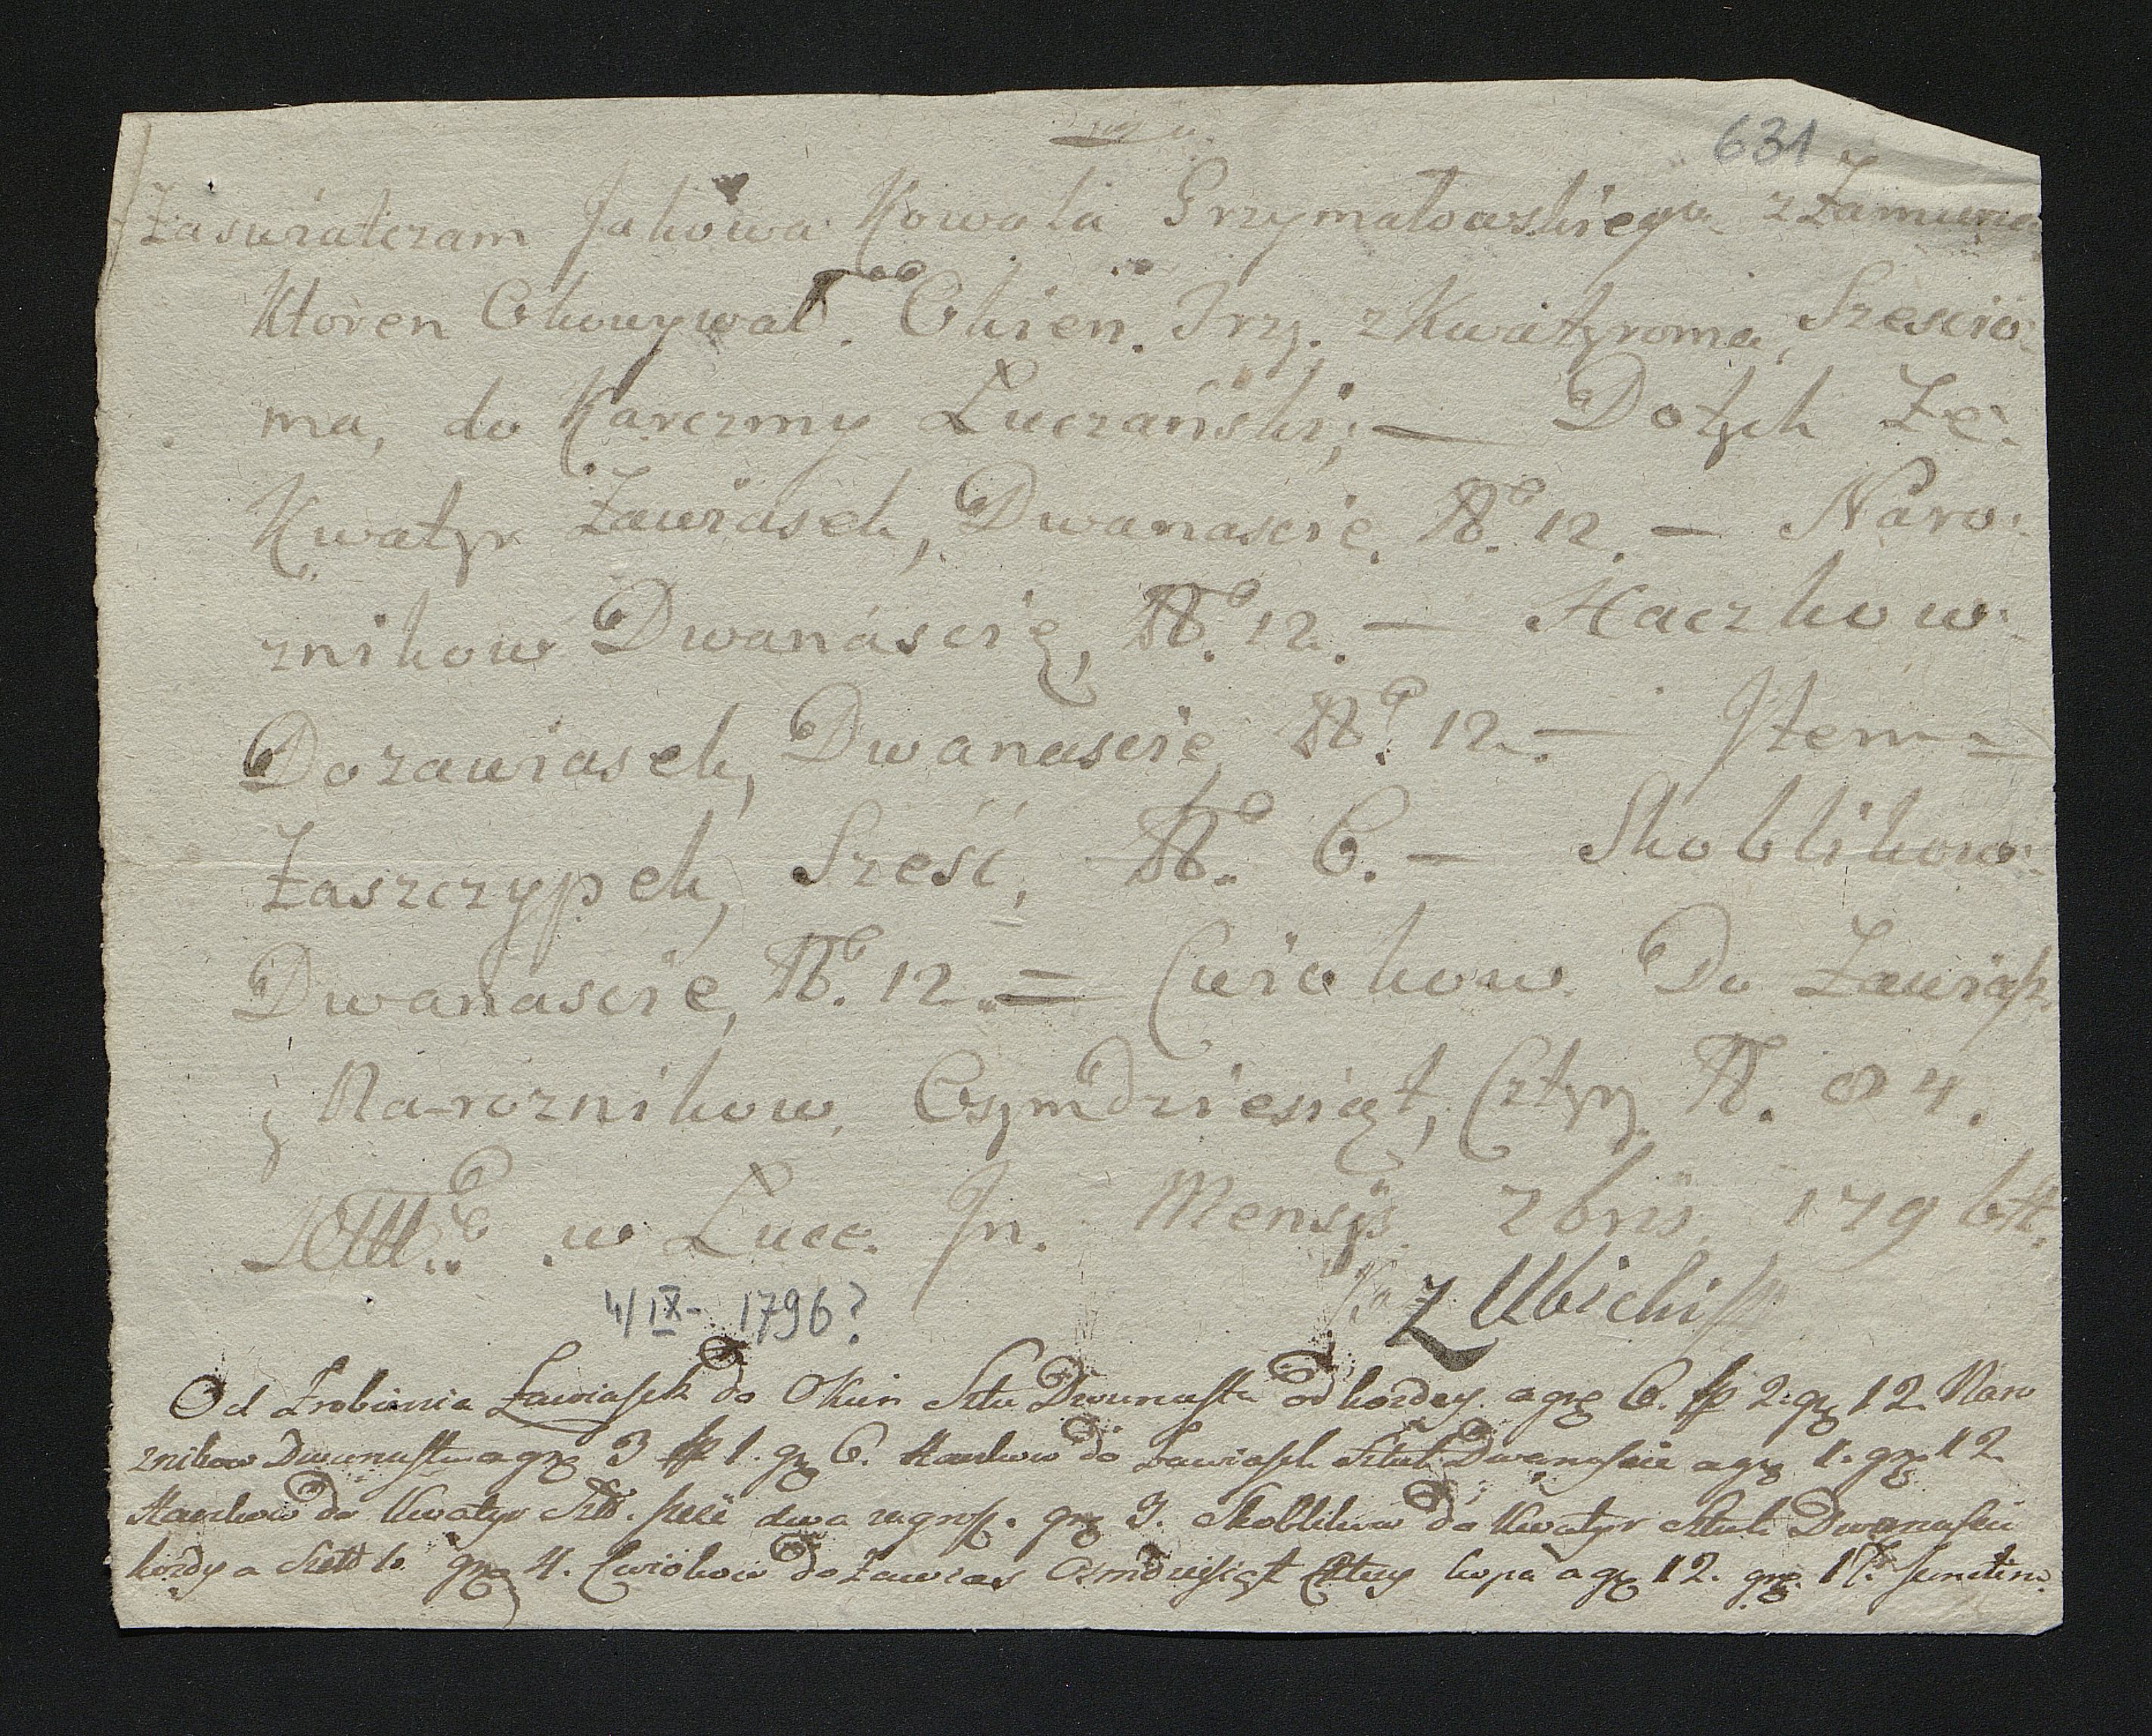 631
Zaswiatczam Jakowa Kowala Grzymałowskiego z Zamurza
Ktoren Okowywał Okien Trzy. z Kwatyroma, Szescio:
ma, do Karczmy Łuczański; — Dotych Ze:
Kwatyr Zawiasek, Dwanascie, No. 12. — Naro:
znikow Dwanáscię, No. 12. — Haczkow
Dozawiasek, Dwanascie No. 12. — Item =
Zaszczypek, Szesć, No. 6. — Skoblikow
Dwanascie, No. 12. = Cwiekow Do Zawias
y Na-roznikow, Osymdziesiąt, Cztyry N. 84.
w Łuce. In. Mensis 7bris 1796tt.
4/IX - 1796?
Z Ubichiss
Od Zrobienia Zawiasek do Okien Sztu Dwunastu od kozdey. a grg 6. fp 2. grg 12. Naro
znikow Dwunastu a grg 3 fp 1. grg 6. Haczkow do Zawiasek Sztuk Dwanascie a grg 1. grg 12
Haczkow do Kwatyr dwa grg 3. Skoblikow do Kwatyr Sztuk Dwanascie
kozdy a grg 4. Cwiokow do Zawias Osmdziesiąt Cztery kopa a grg 12. grg. 17.